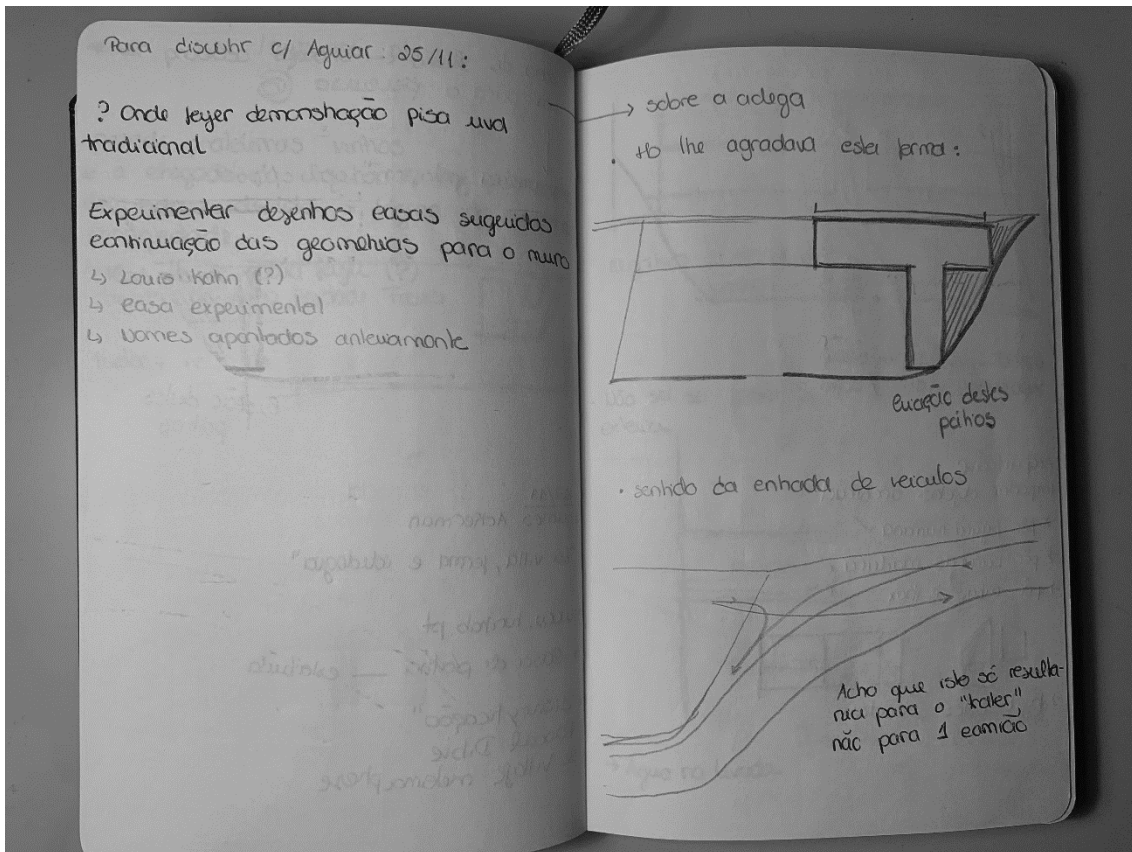 Para discutir c/ Aguiar 25/11:
? Onde fazer demonstração pisa uva
tradicional
Experimentar desenhos casas sugeridas
continuação das geometrias para o muro
↳ Louis Kahn (?)
↳ casa experimental
↳ Nomes apontados anteriormente
→ sobre a adega
· lhe agradava esta forma:
criação destes
pátios
· sentido da entrada de veiculos
Acho que isto só resulta-
ria para o
não para 1 camião